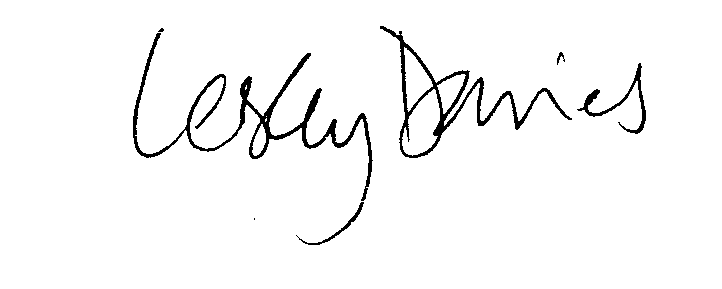 Lesley Davies